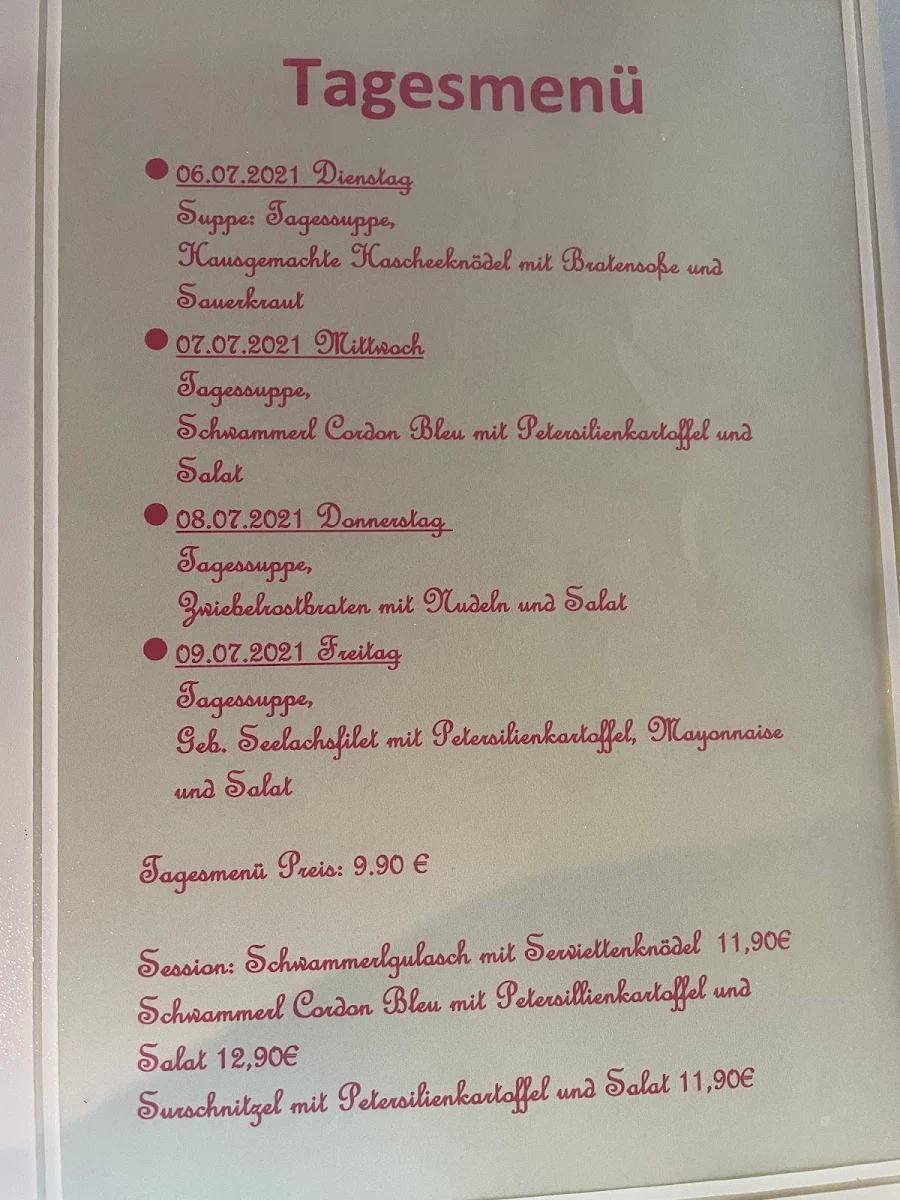 Tagesmenü
● 06.07.2021 Dienstag
Suppe: Tagessuppe,
Hausgemachte Hascheeknödel mit Bratensoße und
Sauerkraut
● 07.07.2021 Mittwoch
Tagessuppe,
Schwammerl Cordon Bleu mit Petersilienkartoffel und
Salat
● 08.07.2021 Donnerstag
Tagessuppe,
Zwiebelrostbraten mit Nudeln und Salat
● 09.07.2021 Freitag
Tagessuppe,
Geb. Seelachsfilet mit Petersilienkartoffel, Mayonnaise
und Salat
Tagesmenü Preis: 9.90 €
Session: Schwammerlgulasch mit Serviettenknödel 11,90€
Schwammerl Cordon Bleu mit Petersillienkartoffel und
Salat 12,90€
Surschnitzel mit Petersilienkartoffel und Salat 11,90€